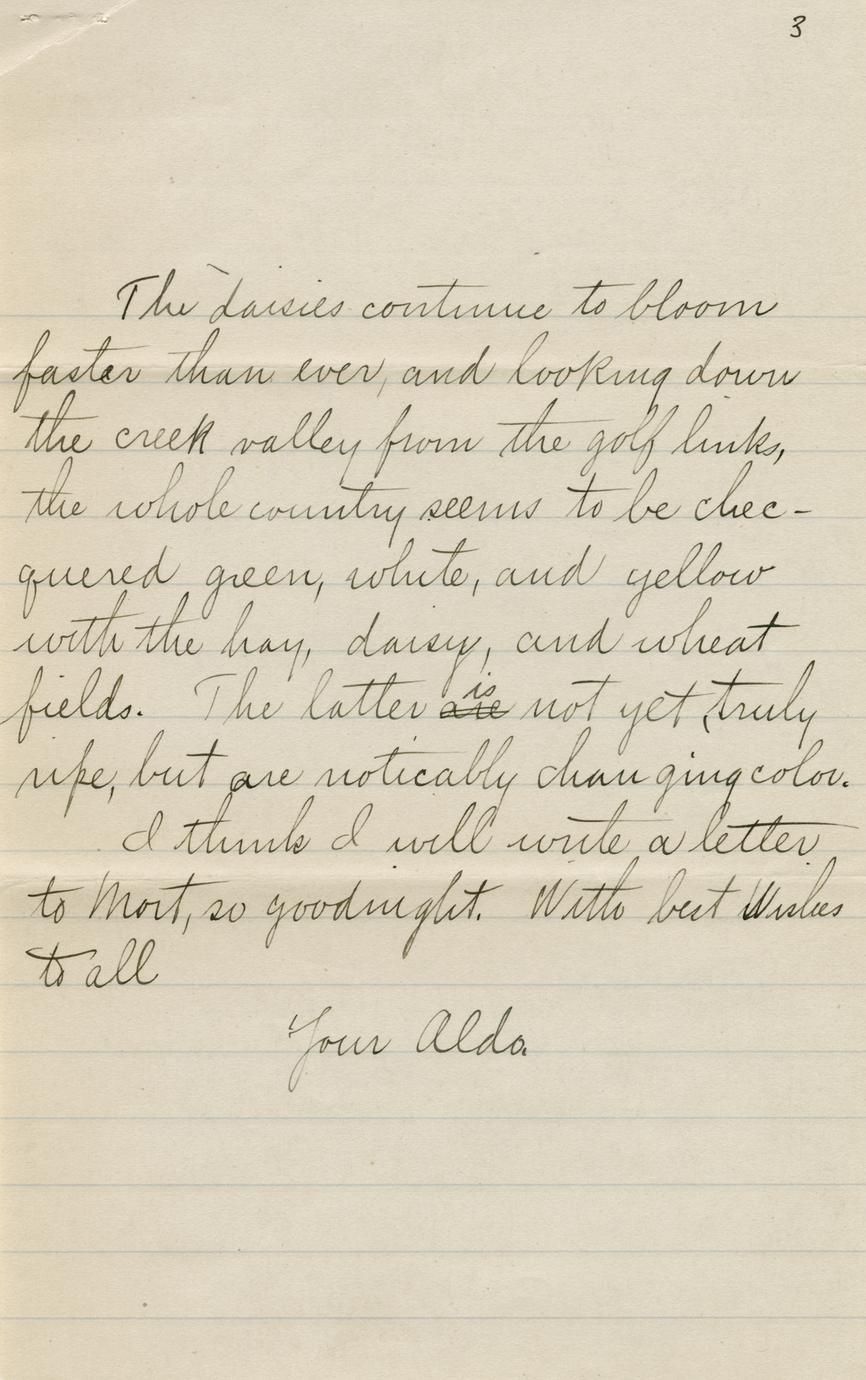 3
The daisies continue to bloom
faster than ever, and looking down
the creek valley from the golf links,
the whole country seems to be chec-
quered green, white, and yellow
with the hay, daisy, and wheat
fields. The latter are is not yet truly
ripe, but are noticably changing color.
I think I will write a letter
to Mort, so goodnight. With best Wishes
to all
Your Aldo.